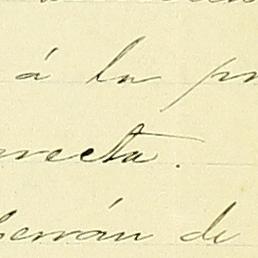 á la pr
recta.
berán de